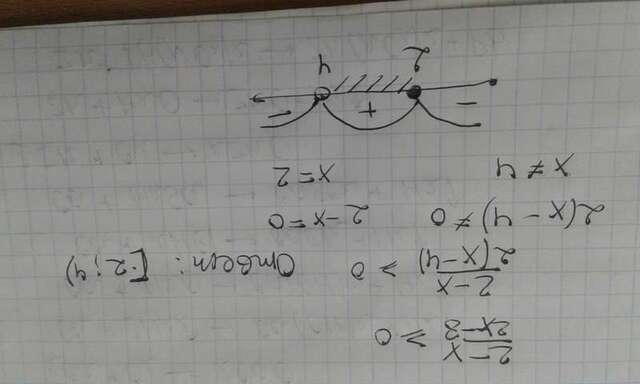 2-x / 2x-8 ≥ 0
2-x / 2(x-4) ≥ 0 Ответ: [2;4)
2(x-4) ≠ 0 2-x=0
x ≠ 4 x=2
- + -
2 4